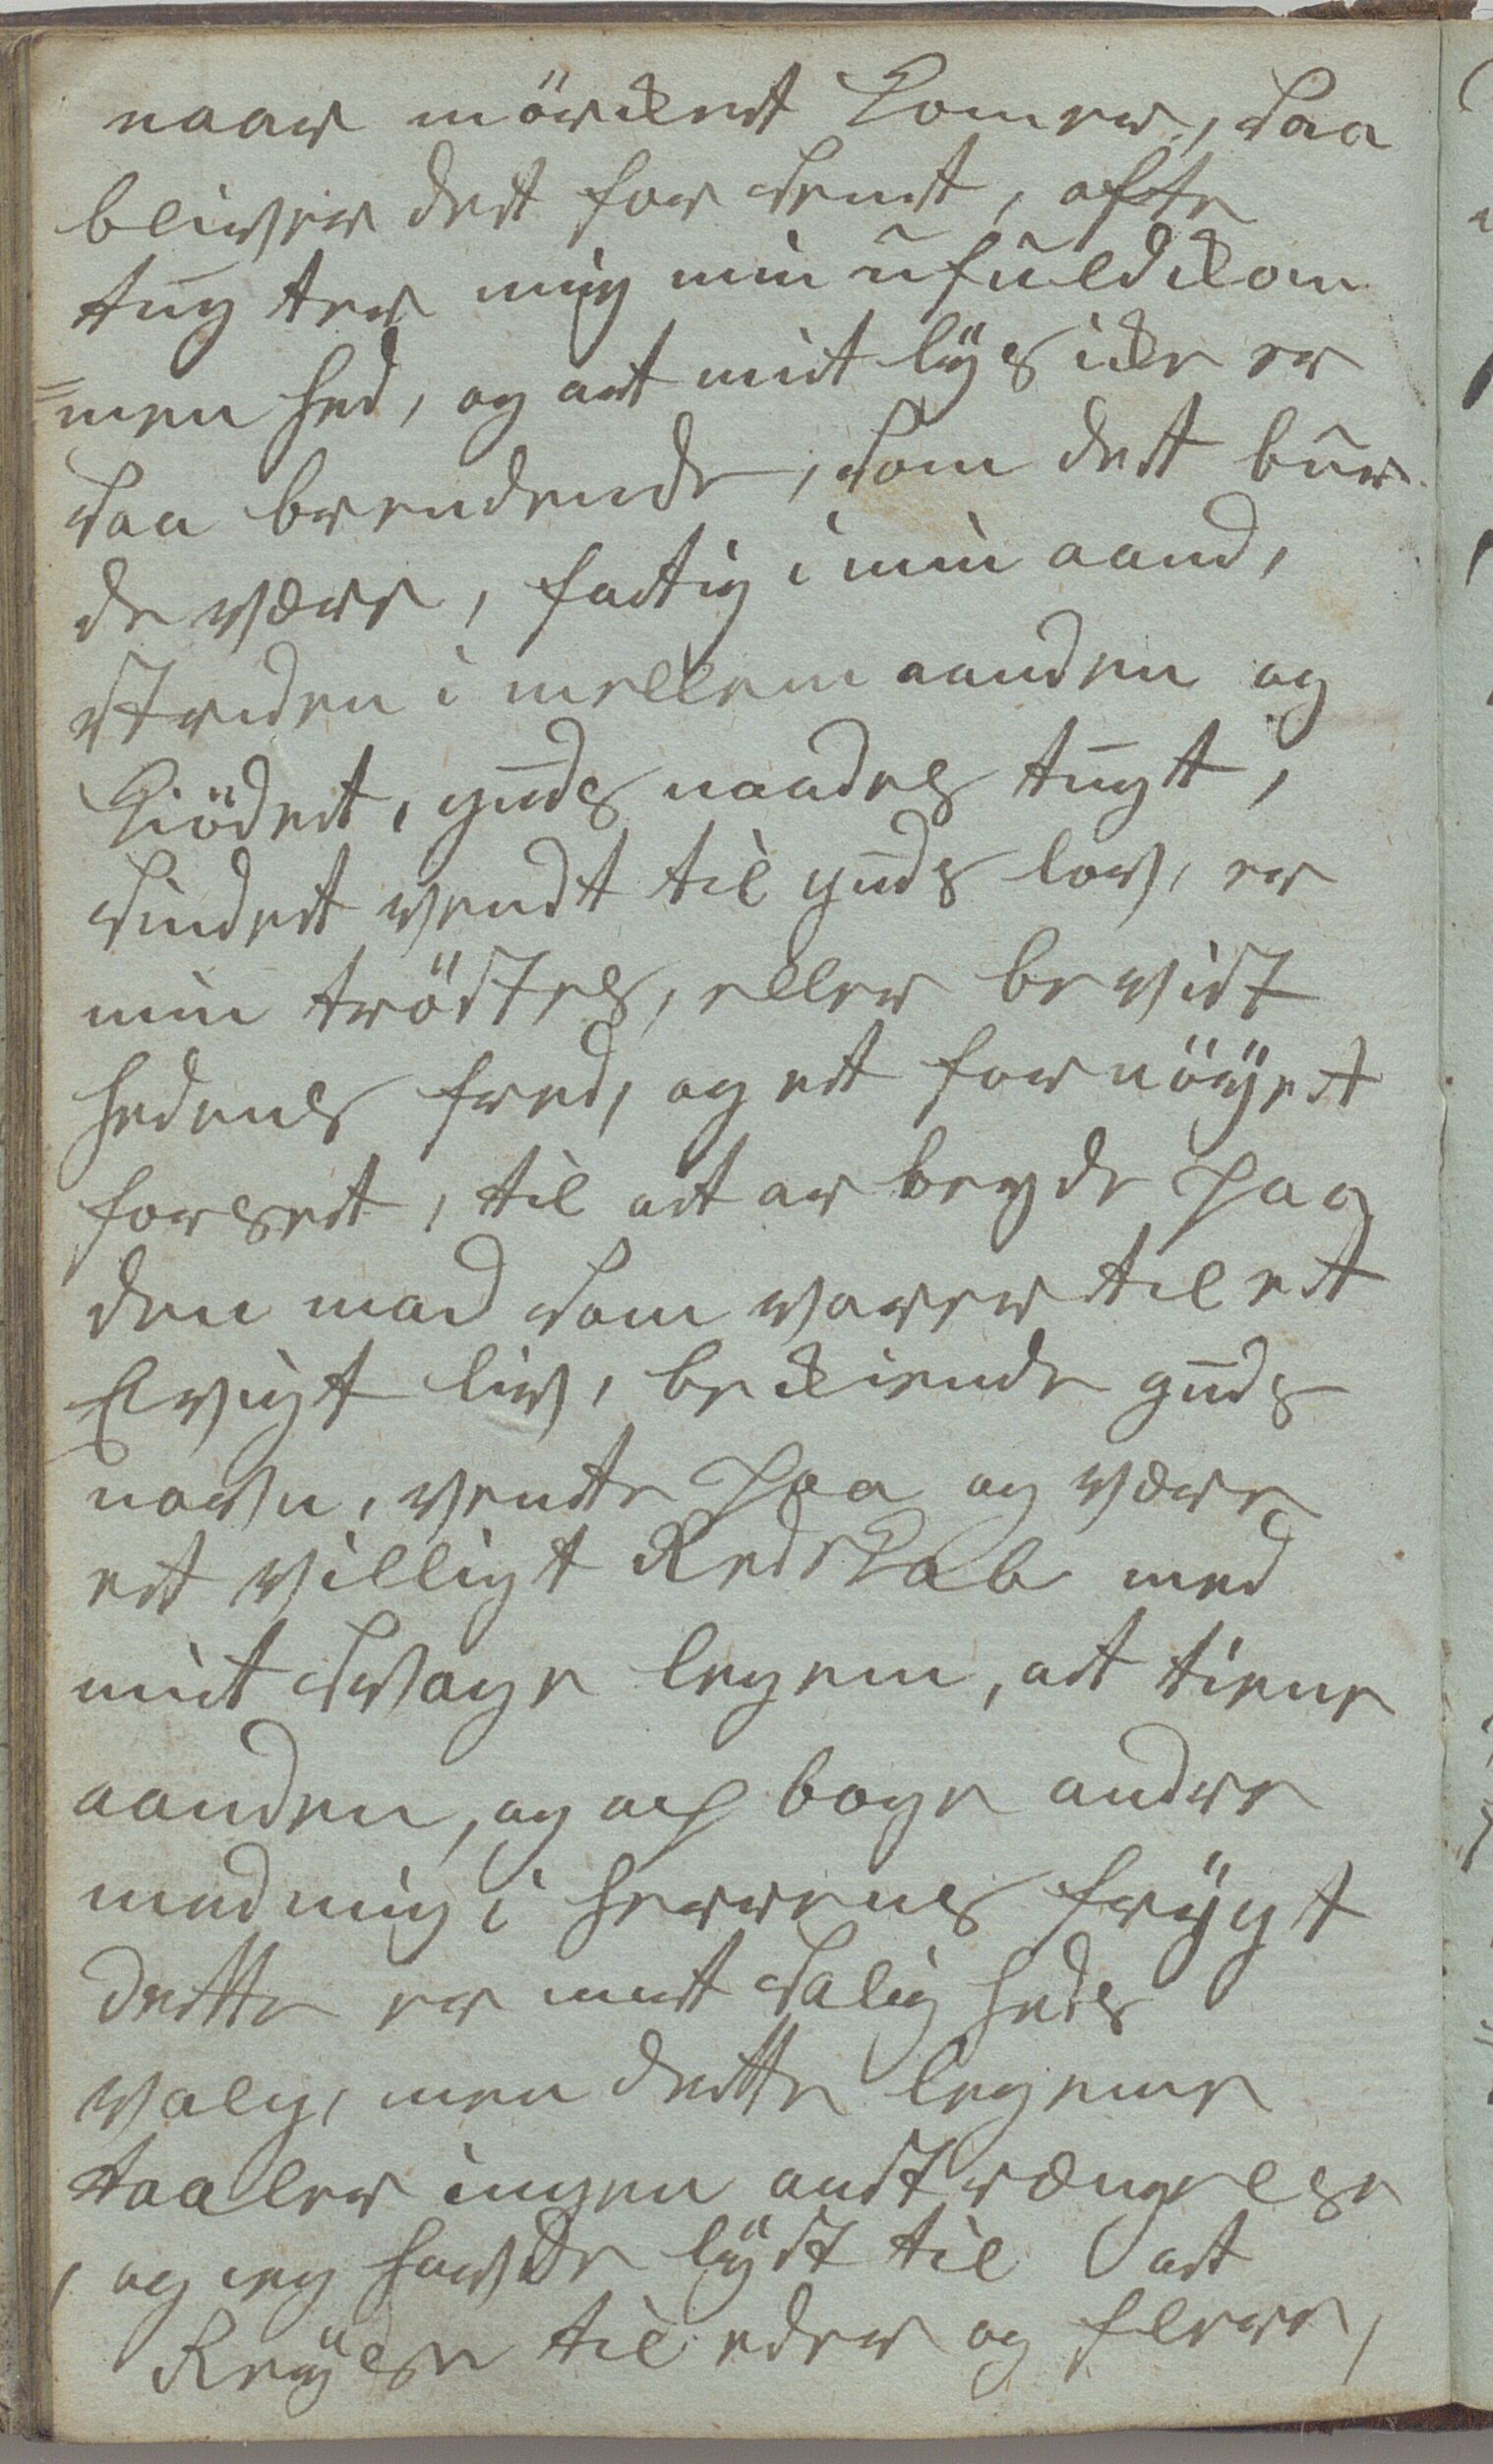 naar mörcket komer, saa
bliver det for sent, ofte
tugter mig min ufuldkom
=menhed, og at mit lys icke er
saa brendende, som det bur
de være, fattig i min aand,
striden i mellem aanden og
kiödet, guds naades tugt,
sindet vendt til guds lov, er
min tröstes, eller bevist
hedens fred, og et fornöyet
forset, til at arbeyde paa
den mad som varer til et
Evigt liv, beckiende guds
navn, vente paa og være
et villigt Redskab med
mit svage legem, at tiene
aanden, og op boge andre
med mig i herrens frygt
dette er mit salig heds
valg, men dette legeme
taaler ingen anstrængelse
, og ieg havde lyst til at
Reyse til eder og flere,